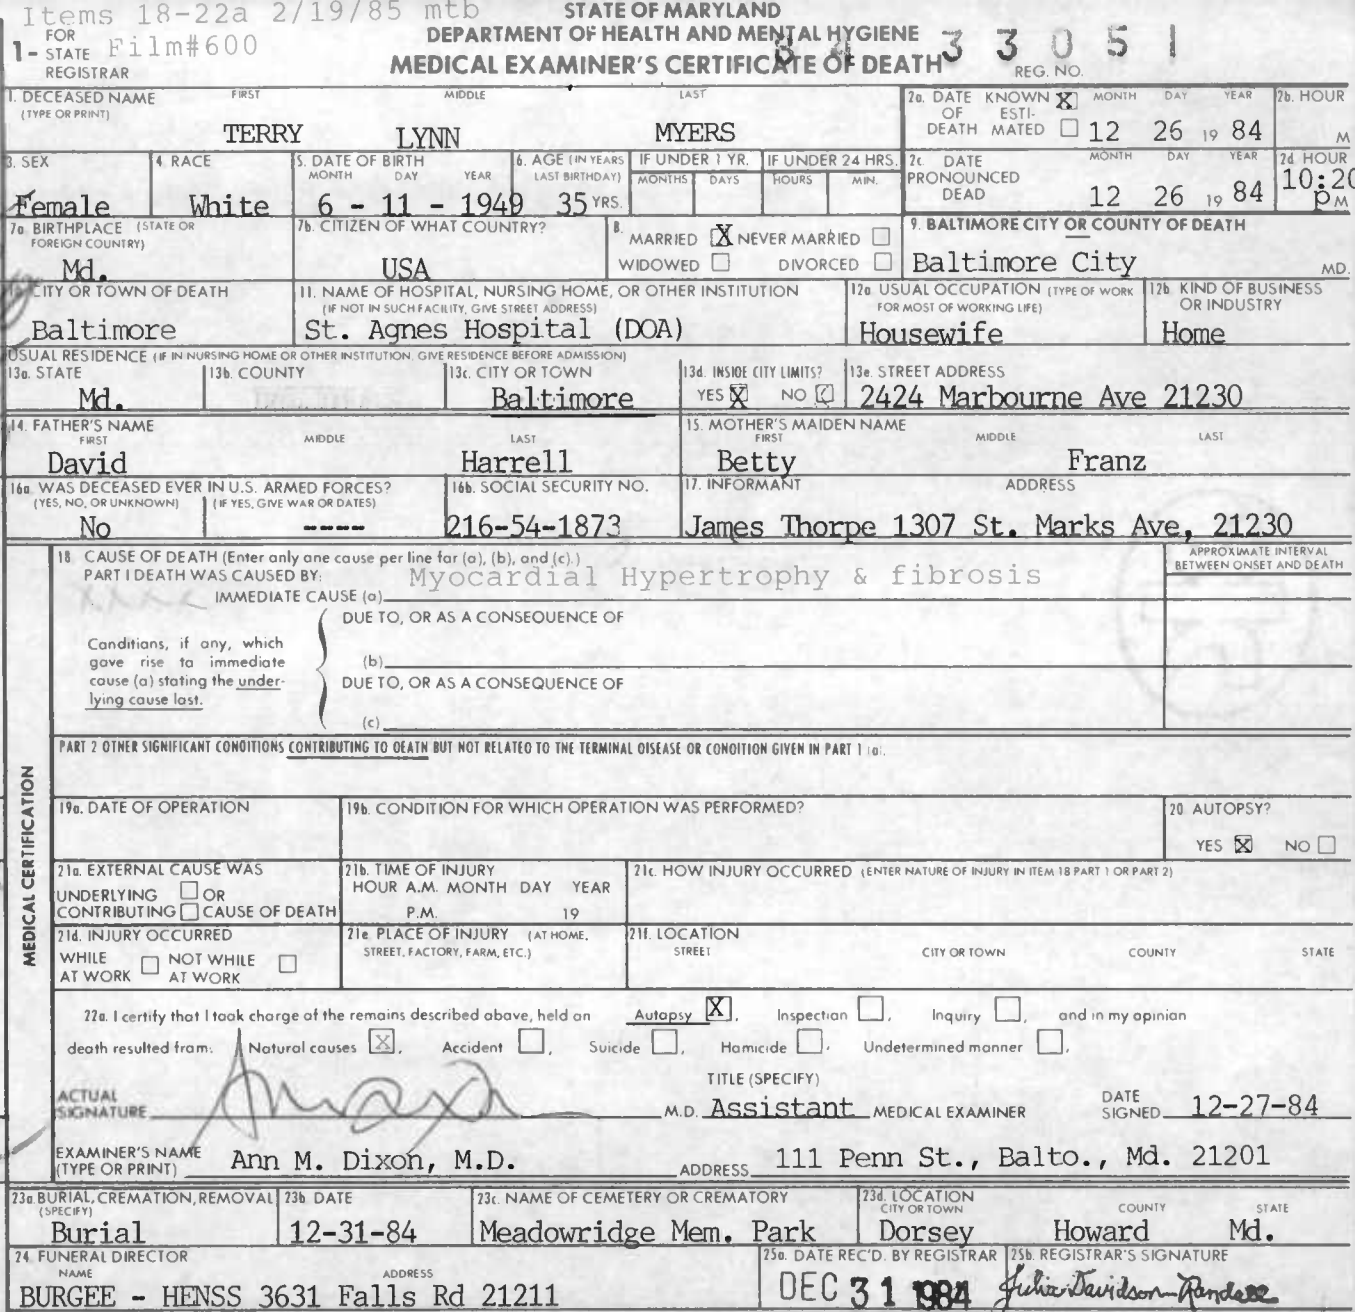 Items 18-22a 2/19/85 mtb
STATE OF MARYLAND
1- FOR STATE REGISTRAR Film#600
DEPARTMENT OF HEALTH AND MENTAL HYGIENE
MEDICAL EXAMINER'S CERTIFICATE OF DEATH
84 33051
REG. NO.
1. DECEASED NAME (TYPE OR PRINT) FIRST MIDDLE LAST
TERRY LYNN MYERS
2a. DATE OF DEATH KNOWN X ESTIMATED MONTH DAY YEAR
12 26 19 84
2b. HOUR
M
3. SEX
Female
4. RACE
White
5. DATE OF BIRTH MONTH DAY YEAR
6 - 11 - 1949
6. AGE (IN YEARS LAST BIRTHDAY)
35 YRS.
IF UNDER 1 YR. MONTHS DAYS
IF UNDER 24 HRS. HOURS MIN.
2c. DATE PRONOUNCED DEAD MONTH DAY YEAR
12 26 19 84
2d HOUR
10:20 PM
7a. BIRTHPLACE (STATE OR FOREIGN COUNTRY)
Md.
7b. CITIZEN OF WHAT COUNTRY?
USA
8. MARRIED X NEVER MARRIED
WIDOWED DIVORCED
9. BALTIMORE CITY OR COUNTY OF DEATH
Baltimore City MD.
CITY OR TOWN OF DEATH
Baltimore
11. NAME OF HOSPITAL, NURSING HOME, OR OTHER INSTITUTION
(IF NOT IN SUCH FACILITY, GIVE STREET ADDRESS)
St. Agnes Hospital (DOA)
12a. USUAL OCCUPATION (TYPE OF WORK FOR MOST OF WORKING LIFE)
Housewife
12b. KIND OF BUSINESS OR INDUSTRY
Home
USUAL RESIDENCE (IF IN NURSING HOME OR OTHER INSTITUTION, GIVE RESIDENCE BEFORE ADMISSION)
13a. STATE
Md.
13b. COUNTY
13c. CITY OR TOWN
Baltimore
13d. INSIDE CITY LIMITS?
YES X NO
13e. STREET ADDRESS
2424 Marbourne Ave 21230
14. FATHER'S NAME FIRST MIDDLE LAST
David Harrell
15. MOTHER'S MAIDEN NAME FIRST MIDDLE LAST
Betty Franz
16a. WAS DECEASED EVER IN U.S. ARMED FORCES?
(YES, NO, OR UNKNOWN) (IF YES, GIVE WAR OR DATES)
No ----
16b. SOCIAL SECURITY NO.
216-54-1873
17. INFORMANT ADDRESS
James Thorpe 1307 St. Marks Ave, 21230
MEDICAL CERTIFICATION
18. CAUSE OF DEATH (Enter only one cause per line for (a), (b), and (c).)
APPROXIMATE INTERVAL BETWEEN ONSET AND DEATH
PART I DEATH WAS CAUSED BY: Myocardial Hypertrophy & fibrosis
IMMEDIATE CAUSE (a)
DUE TO, OR AS A CONSEQUENCE OF
Conditions, if any, which
gave rise to immediate
cause (a) stating the under-
lying cause last.
(b)
DUE TO, OR AS A CONSEQUENCE OF
(c)
PART 2 OTHER SIGNIFICANT CONDITIONS CONTRIBUTING TO DEATH BUT NOT RELATED TO THE TERMINAL DISEASE OR CONDITION GIVEN IN PART 1 (a).
19a. DATE OF OPERATION
19b. CONDITION FOR WHICH OPERATION WAS PERFORMED?
20. AUTOPSY?
YES X NO
21a. EXTERNAL CAUSE WAS
UNDERLYING OR
CONTRIBUTING CAUSE OF DEATH
21b. TIME OF INJURY
HOUR A.M. MONTH DAY YEAR
P.M. 19
21c. HOW INJURY OCCURRED (ENTER NATURE OF INJURY IN ITEM 18 PART 1 OR PART 2)
21d. INJURY OCCURRED
WHILE AT WORK NOT WHILE AT WORK
21e. PLACE OF INJURY (AT HOME, STREET, FACTORY, FARM, ETC.)
21f. LOCATION
STREET CITY OR TOWN COUNTY STATE
22a. I certify that I took charge of the remains described above, held an Autopsy X, Inspection, Inquiry, and in my opinion
death resulted from: Natural causes X, Accident, Suicide, Homicide, Undetermined manner.
ACTUAL SIGNATURE
TITLE (SPECIFY)
M.D. Assistant MEDICAL EXAMINER
DATE SIGNED 12-27-84
EXAMINER'S NAME (TYPE OR PRINT) Ann M. Dixon, M.D.
ADDRESS 111 Penn St., Balto., Md. 21201
23a. BURIAL, CREMATION, REMOVAL (SPECIFY)
Burial
23b. DATE
12-31-84
23c. NAME OF CEMETERY OR CREMATORY
Meadowridge Mem. Park
23d. LOCATION CITY OR TOWN COUNTY STATE
Dorsey Howard Md.
24. FUNERAL DIRECTOR
NAME ADDRESS
BURGEE - HENSS 3631 Falls Rd 21211
25a. DATE REC'D. BY REGISTRAR
DEC 31 1984
25b. REGISTRAR'S SIGNATURE
Julia Davidson-Randall